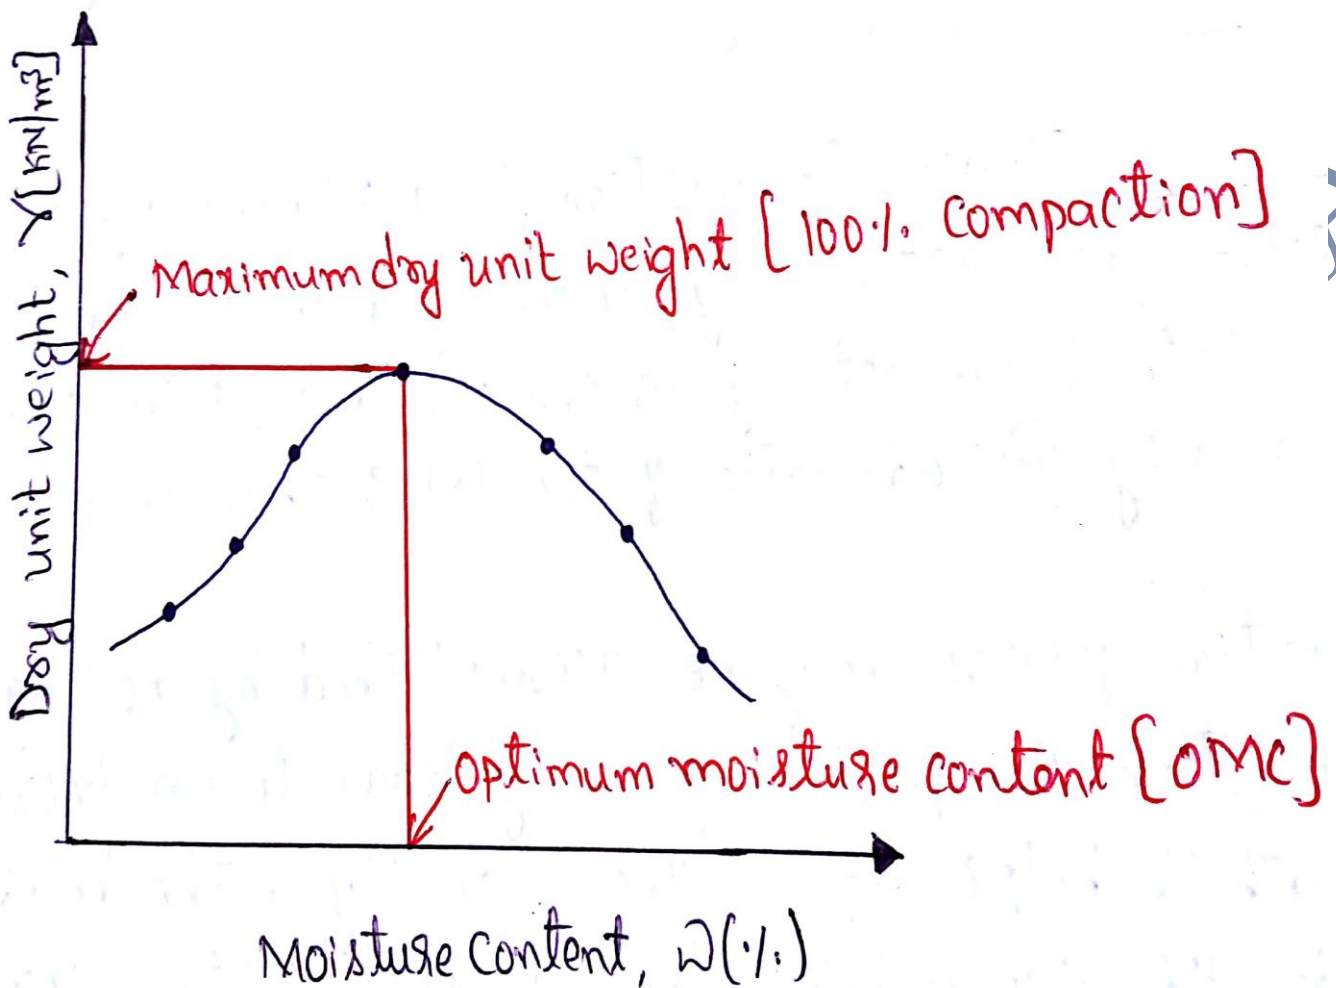 Dry unit weight, γ [kN/m³]
Maximum dry unit weight [100% compaction]
Optimum moisture content [OMC]
Moisture Content, ω (%)